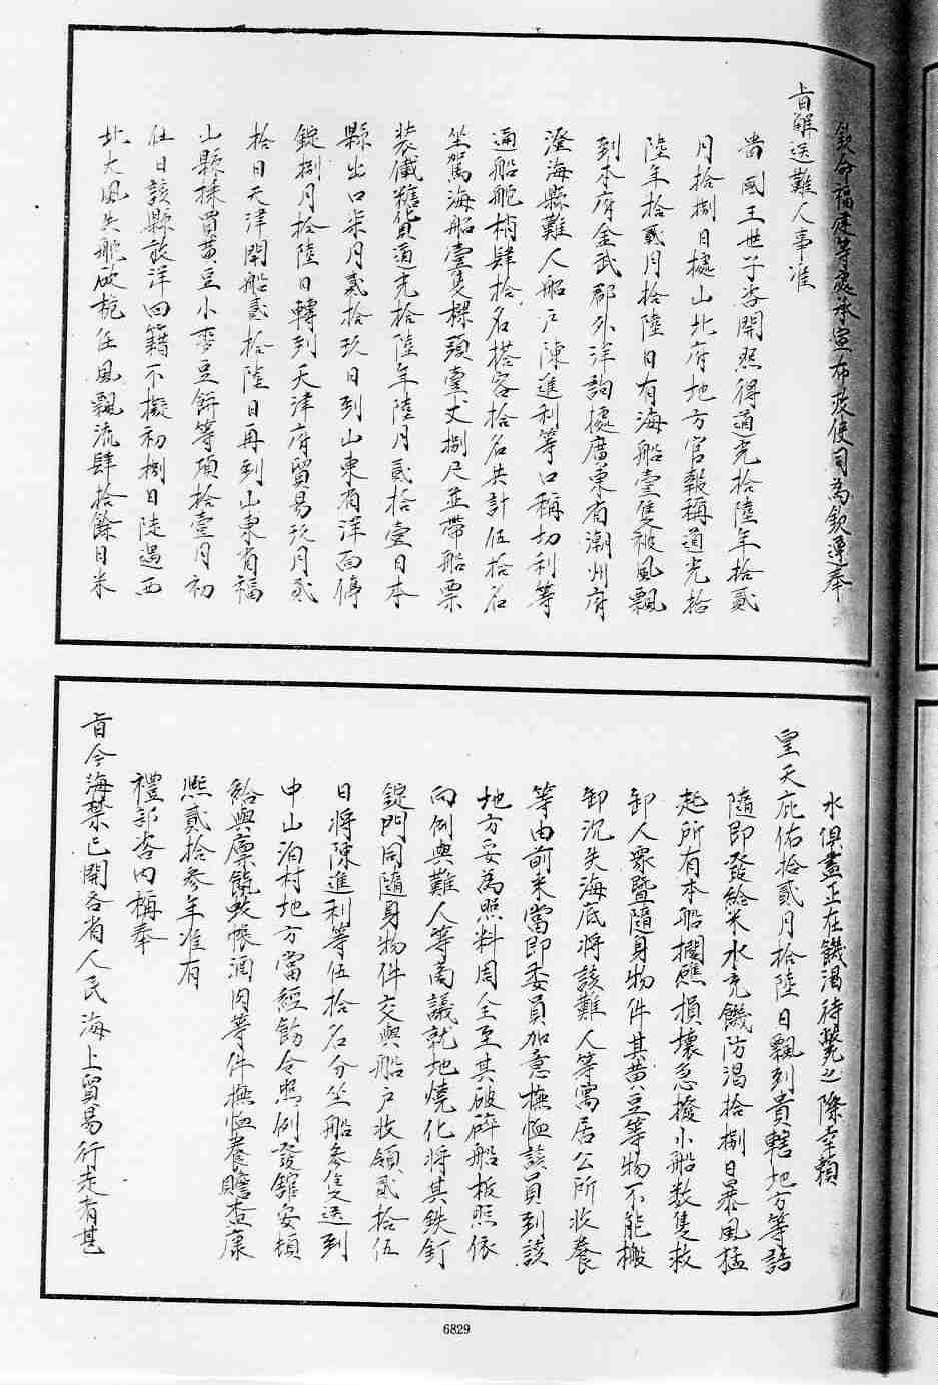 欽命福建等處承宣布政使司為欽遵奉
旨解送難人事准
貴國王世子咨開照得道光拾陸年拾貳
月拾捌日據山北府地方官報稱道光拾
陸年拾貳月拾陸日有海船壹隻被風飄
到本府金武郡外洋詢據廣東省潮州府
澄海縣難人船戶陳進利等口稱切利等
通船舵梢肆拾名搭客拾名共計伍拾名
坐駕海船壹隻樑頭壹丈捌尺並帶船票
裝儎糖貨道光拾陸年陸月貳拾壹日本
縣出口柒月貳拾玖日到山東省洋面停
錠捌月拾陸日轉到天津府貿易玖月貳
拾日天津開船貳拾陸日再到山東省福
山縣採買黃豆小麥豆餅等項拾壹月初
任日該縣放洋回籍不擬初捌日陡遇西
北大風失舵砍桅任風飄流肆拾餘日米
水俱盡正在饑渴待斃之際幸賴
皇天庇佑拾貳月拾陸日飄到貴轄地方等語
隨即發給米水充饑防渴拾捌日暴風猛
起所有本船擱礁損壞急撥小船數隻救
卸人眾暨隨身物件其黃豆等物不能搬
卸沉失海底將該難人等寓居公所收養
等由前來當即委員加意撫恤該員到該
地方妥為照料周全至其破碎船板照依
向例與難人等商議就地燒化將其鉄釘
錠門同隨身物件交與船戶收領貳拾伍
日將陳進利等伍拾名分坐船叁隻送到
中山泊村地方當經飭令照例發館安頓
給與廩餼蚊帳酒肉等件撫恤養贍查康
熙貳拾參年准有
禮部咨內稱奉
旨今海禁已開各省人民海上貿易行走者甚
6829